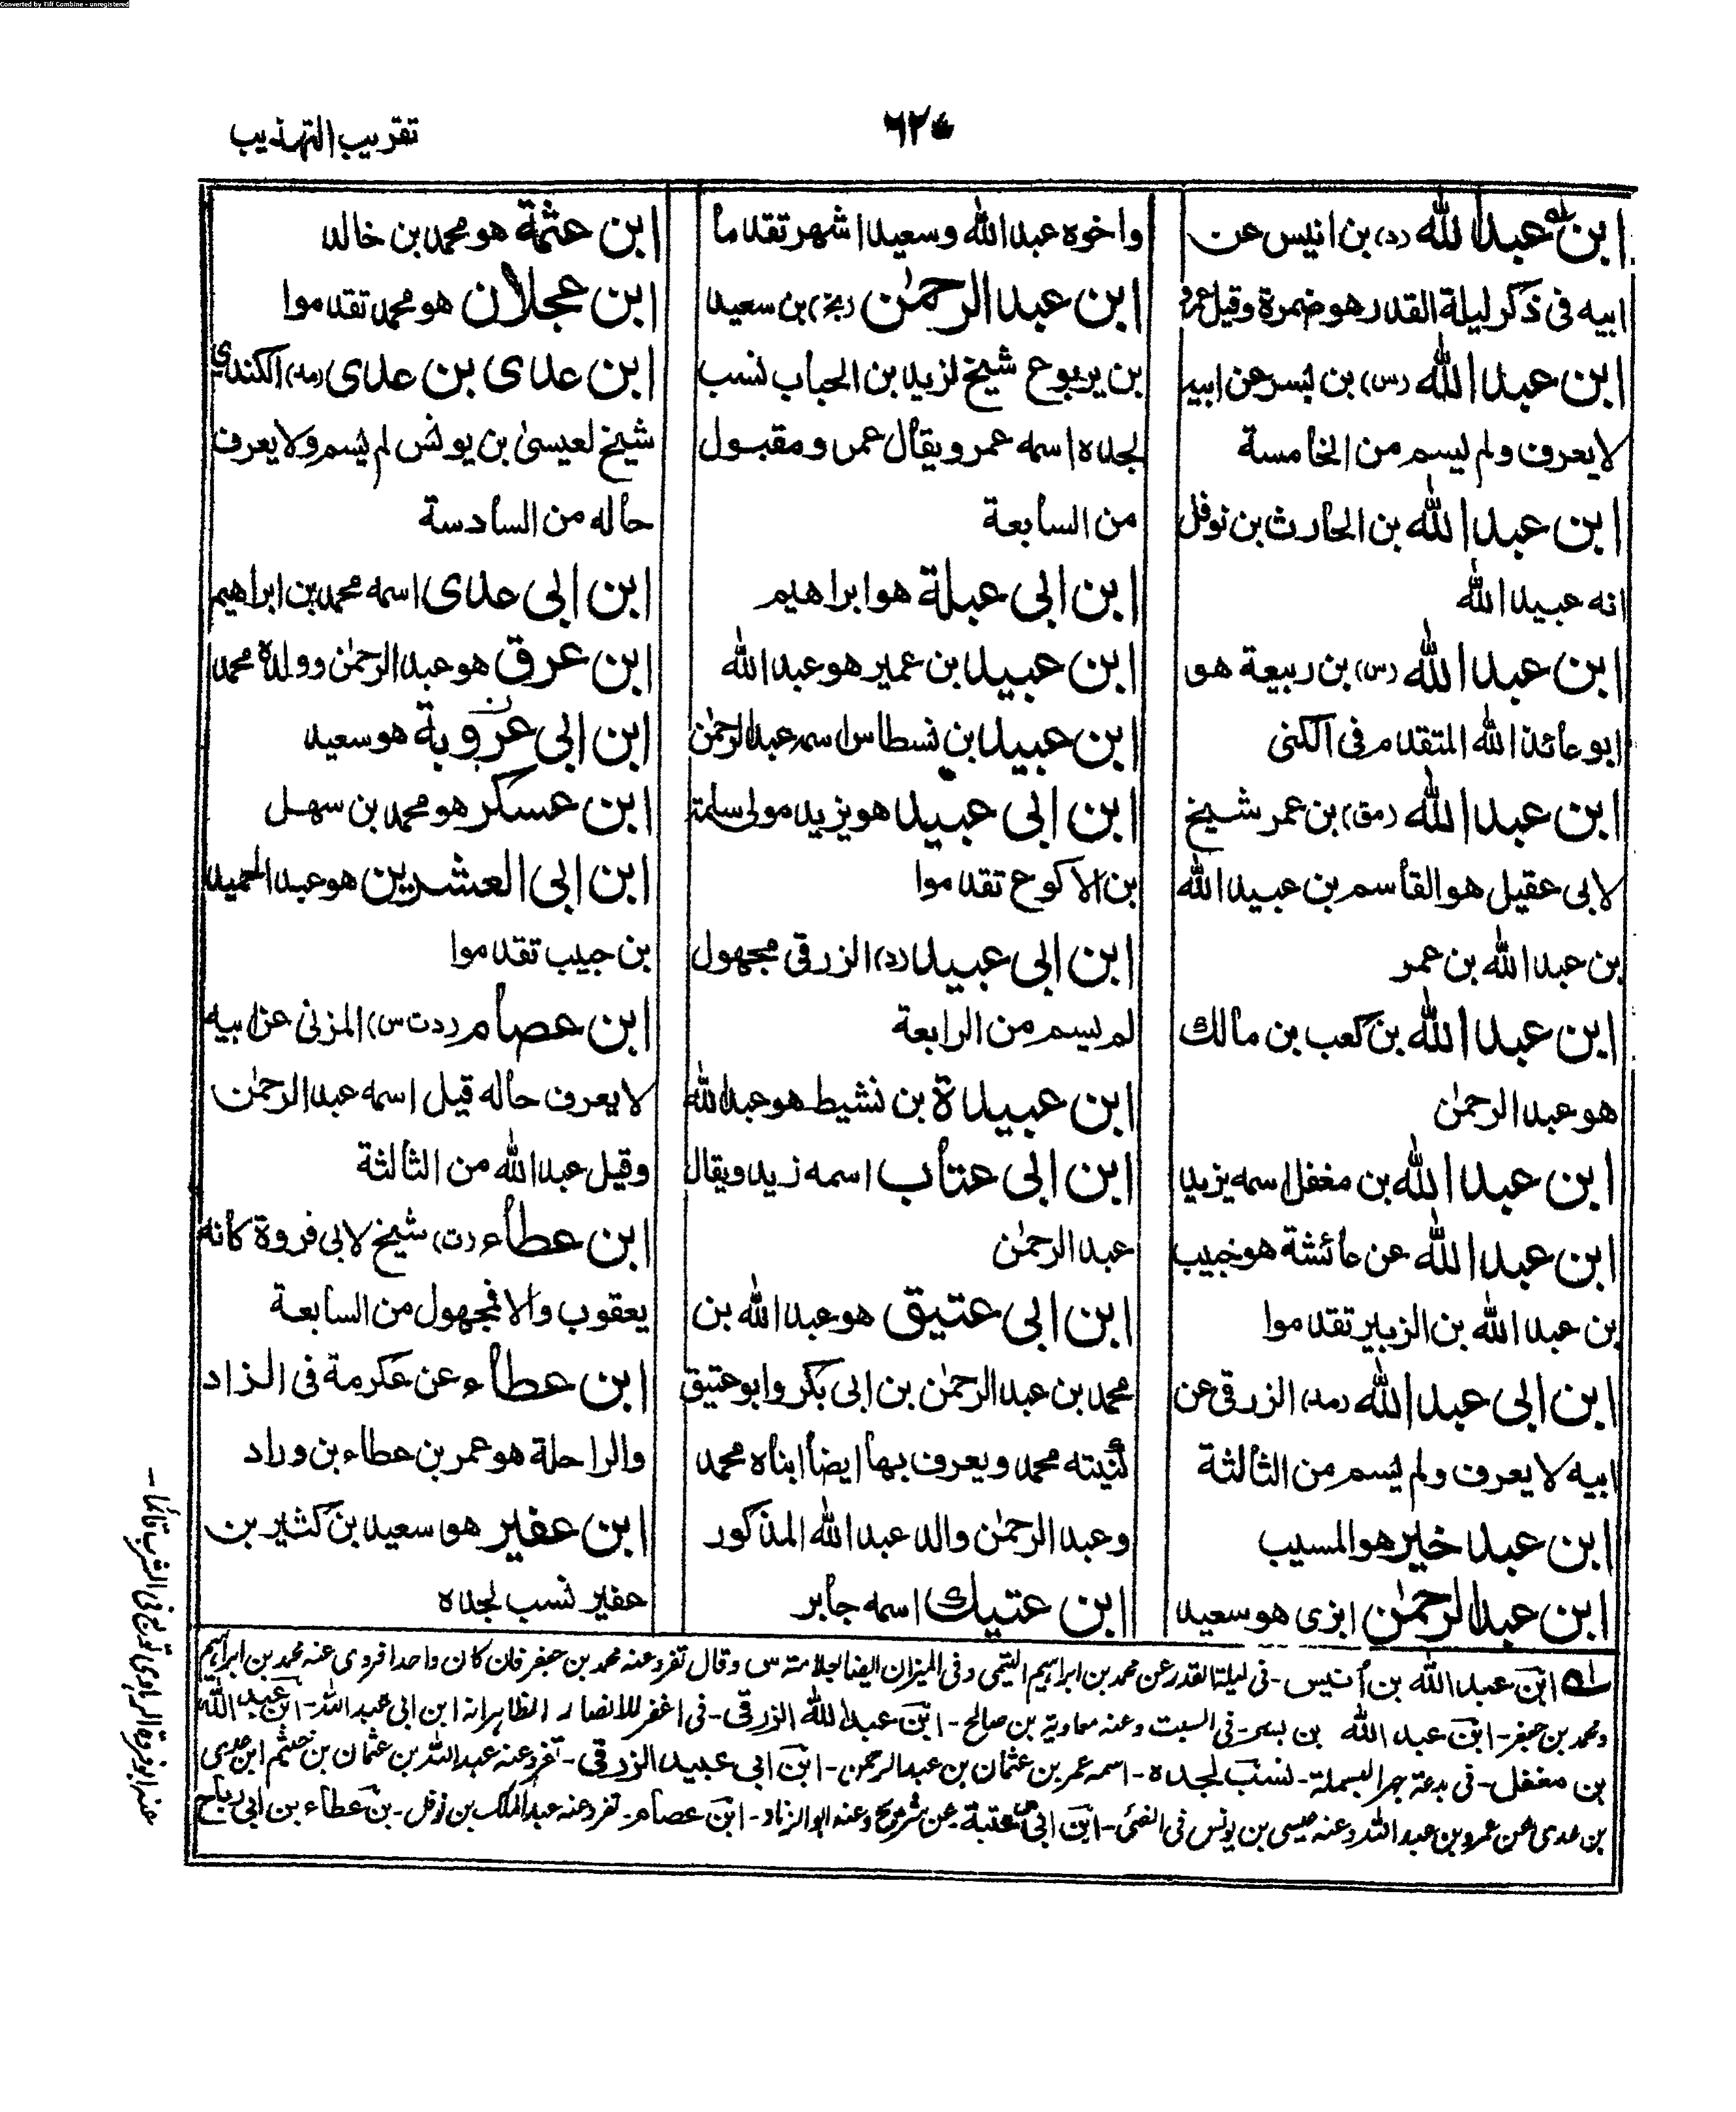 Converted by Tiff Combine - unregistered
تقريب التهذيب
٦٢٠
ابن عبد الله (د) بن انيس عن
ابيه فى ذكر ليلة القدر هو ضمرة وقيل عمرو
ابن عبد الله (س) بن بسر عن ابيه
لا يعرف ولم يسم من الخامسة
ابن عبد الله بن الحارث بن نوفل
انه عبيد الله
ابن عبد الله (س) بن ربيعة هو
ابو عائذ الله المتقدم فى الكنى
ابن عبد الله (مق) بن عمر شيخ
لابى عقيل هو القاسم بن عبيد الله
بن عبد الله بن عمر
ابن عبد الله بن كعب بن مالك
هو عبد الرحمٰن
ابن عبد الله بن مغفل اسمه يزيد
ابن عبد الله عن عائشة هو خبيب
بن عبد الله بن الزبير تقدموا
ابن ابى عبد الله (مد) الزرقى عن
ابيه لا يعرف ولم يسم من الثالثة
ابن عبد خير هو المسيب
ابن عبد الرحمٰن ابزى هو سعيد
واخوه عبد الله وسعيد اشهر تقدما
ابن عبد الرحمٰن (بخ) بن سعيد
بن يربوع شيخ لزيد بن الحباب نسب
لجده اسمه عمر ويقال عمرو مقبول
من السابعة
ابن ابى عبلة هو ابراهيم
ابن عبيد بن عمير هو عبد الله
ابن عبيد بن نسطاس اسمه عبد الرحمٰن
ابن ابى عبيد هو يزيد مولى سلمة
بن الاكوع تقدموا
ابن ابى عبيد (د) الزرقى مجهول
لم يسم من الرابعة
ابن عبيدة بن نشيط هو عبد الله
ابن ابى عتاب اسمه زيد ويقال
عبد الرحمٰن
ابن ابى عتيق هو عبد الله بن
محمد بن عبد الرحمٰن بن ابى بكر وابو عتيق
كنيته محمد ويعرف بها ايضا ابناه محمد
وعبد الرحمٰن والد عبد الله المذكور
ابن عتيك اسمه جابر
ابن عثمة هو محمد بن خالد
ابن عجلان هو محمد تقدموا
ابن عدى بن عدى (مد) الكندي
شيخ لعيسىٰ بن يونس لم يسم ولا يعرف
حاله من السادسة
ابن ابى عدى اسمه محمد بن ابراهيم
ابن عرق هو عبد الرحمٰن وولده محمد
ابن ابى عروبة هو سعيد
ابن عسكر هو محمد بن سهل
ابن ابى العشرين هو عبد الحميد
بن حبيب تقدموا
ابن عصام (د ت س) المزنى عن ابيه
لا يعرف حاله قيل اسمه عبد الرحمٰن
وقيل عبد الله من الثالثة
ابن عطاء (ت) شيخ لابى فروة كانه
يعقوب والا فمجهول من السابعة
ابن عطاء عن عكرمة فى الزاد
والراحلة هو عمر بن عطاء بن وراد
ابن عفير هو سعيد بن كثير بن
عفير نسب لجده
ابن عبد الله بن أنيس - فى ليلة القدر عن محمد بن ابراهيم التيمى وفى الميزان ايضا بعلامة س وقال تفرد عنه محمد بن جعفر فان كان واحدا فروى عنه محمد بن ابراهيم
ومحمد بن جعفر - ابن عبد الله بن بسر - فى السبت وعنه معاوية بن صالح - ابن عبد الله الزرقى - فى اغفر للانصار الظاهر انه ابن ابى عبد الله - ابن عبد الله
بن مغفل - فى بدعة جهر البسملة - نسب لجده - اسمه عمر بن عثمان بن عبد الرحمن - ابن ابى عبيد الزرقى - تفرد عنه عبد الله بن عثمان بن خثيم ابن عدى
بن عدى عن عمرو بن عبد الله وعنه عيسى بن يونس فى الفئ - ابن ابى عتبة عن شريح وعنه ابو الزناد - ابن عصام - تفرد عنه عبد الملك بن نوفل - بن عطاء بن ابى رباح
عنه ابو فروة الرهاوى